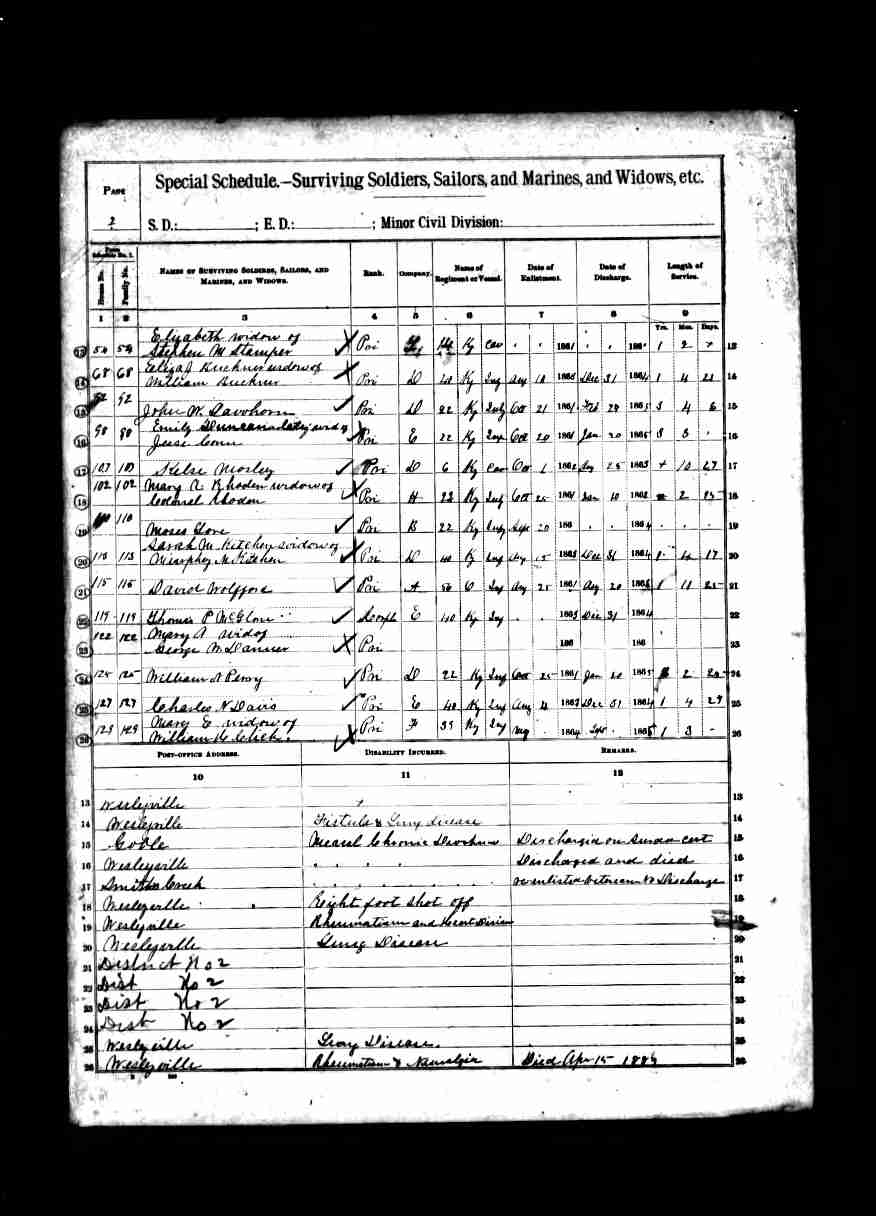 Page 2
Special Schedule.—Surviving Soldiers, Sailors, and Marines, and Widows, etc.
S. D.: ; E. D.: ; Minor Civil Division:
From Schedule No. 1.
House No. Family No. Names of Surviving Soldiers, Sailors, and Marines, and Widows. Rank. Company. Name of Regiment or Vessel. Date of Enlistment. Date of Discharge. Length of Service.
1 2 3 4 5 6 7 8 9
Yrs. Mos. Days.
Elizabeth widow of
13 54 54 Stephen M Stamper Pri 14 Ky Cav 186 186 1 2 13
68 68 Eliza J Buckner widow of
14 William Buckner Pri D 40 Ky Inf Aug 18 1863 Dec 31 1864 1 4 14
92 92
15 John W. Pri D 22 Ky Inf Oct 21 1861 Feb 1865 3 4 6 15
98 98 Emily wid of
16 Jesse Conn Pri E 22 Ky Inf Oct 20 1861 Jan 20 1865 3 3 16
17 107 107 Kelse Mosley Pri D 6 Ky Cav 1 1862 25 1863 10 17
102 102 Mary A Rhoden widow of
18 Colonel Rhoden Pri H 22 Ky Inf Oct 25 1861 Jan 10 1862 2 18
110
19 Moses Glore Pri B 22 Ky Inf Sept 20 186 1864 19
Sarah M Kitchen widow of
20 113 113 Murphey M Kitchen Pri D 40 Ky Inf Aug 15 1863 Dec 31 1864 1 17 20
21 115 115 David Wolfford Pri A 56 O Inf 25 1861 Aug 20 186 1 11 25 21
22 119 119 Thomas P McGlone Corpl E 40 Ky Inf 1863 Dec 31 1864 22
122 122 Mary A wid of
23 George W Danner Pri 186 186 23
24 125 125 William A Perry Pri D 22 Ky Inf Oct 25 1861 Jan 20 1865 2 24
25 127 127 Charles N Davis Pri E 40 Ky Inf Aug 4 1863 Dec 31 1864 1 4 27 25
129 129 Mary E widow of
26 William C Click. Pri 39 Ky Inf 1864 Sept 1865 1 3 - 26
Post-office Address. Disability Incurred. Remarks.
10 11 12
13 Wesleyville 13
14 Wesleyville Fistula & Lung disease 14
15 Goble Chronic Discharged on Surgeon cert 15
16 Wesleyville Discharged and died 16
17 Smiths Creek Discharge 17
18 Wesleyville Right foot shot off 18
19 Wesleyville Rheumatism and Heart Disease 19
20 Wesleyville Lung Disease 20
21 District No 2 21
22 Dist No 2 22
23 Dist No 2 23
24 Dist No 2 24
25 Wesleyville Lung Disease. 25
26 Wesleyville Rheumatism & Neuralgia Died Apr 15 188 26